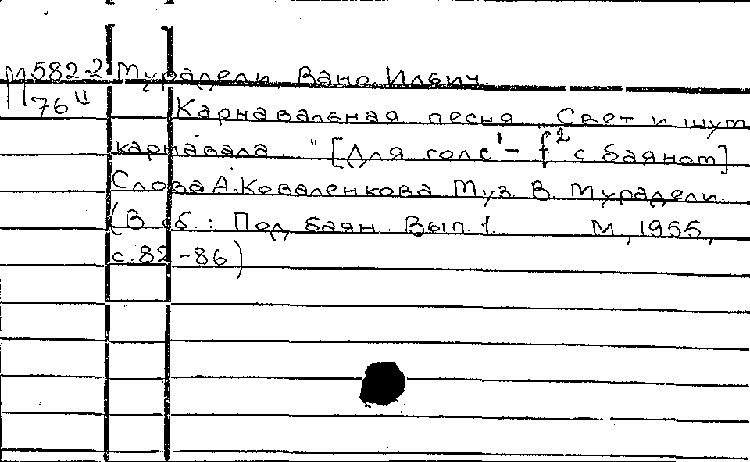 М582-2 Мурадели, Вано Ильич
П76 Карнавальная песня „Свет и шум
карнавала..." [Для голс¹ – f² с баяном]
Слова А. Коваленкова Муз. В. Мурадели.
(В сб.: Под баян. Вып. 1. М., 1955,
с. 82-86)